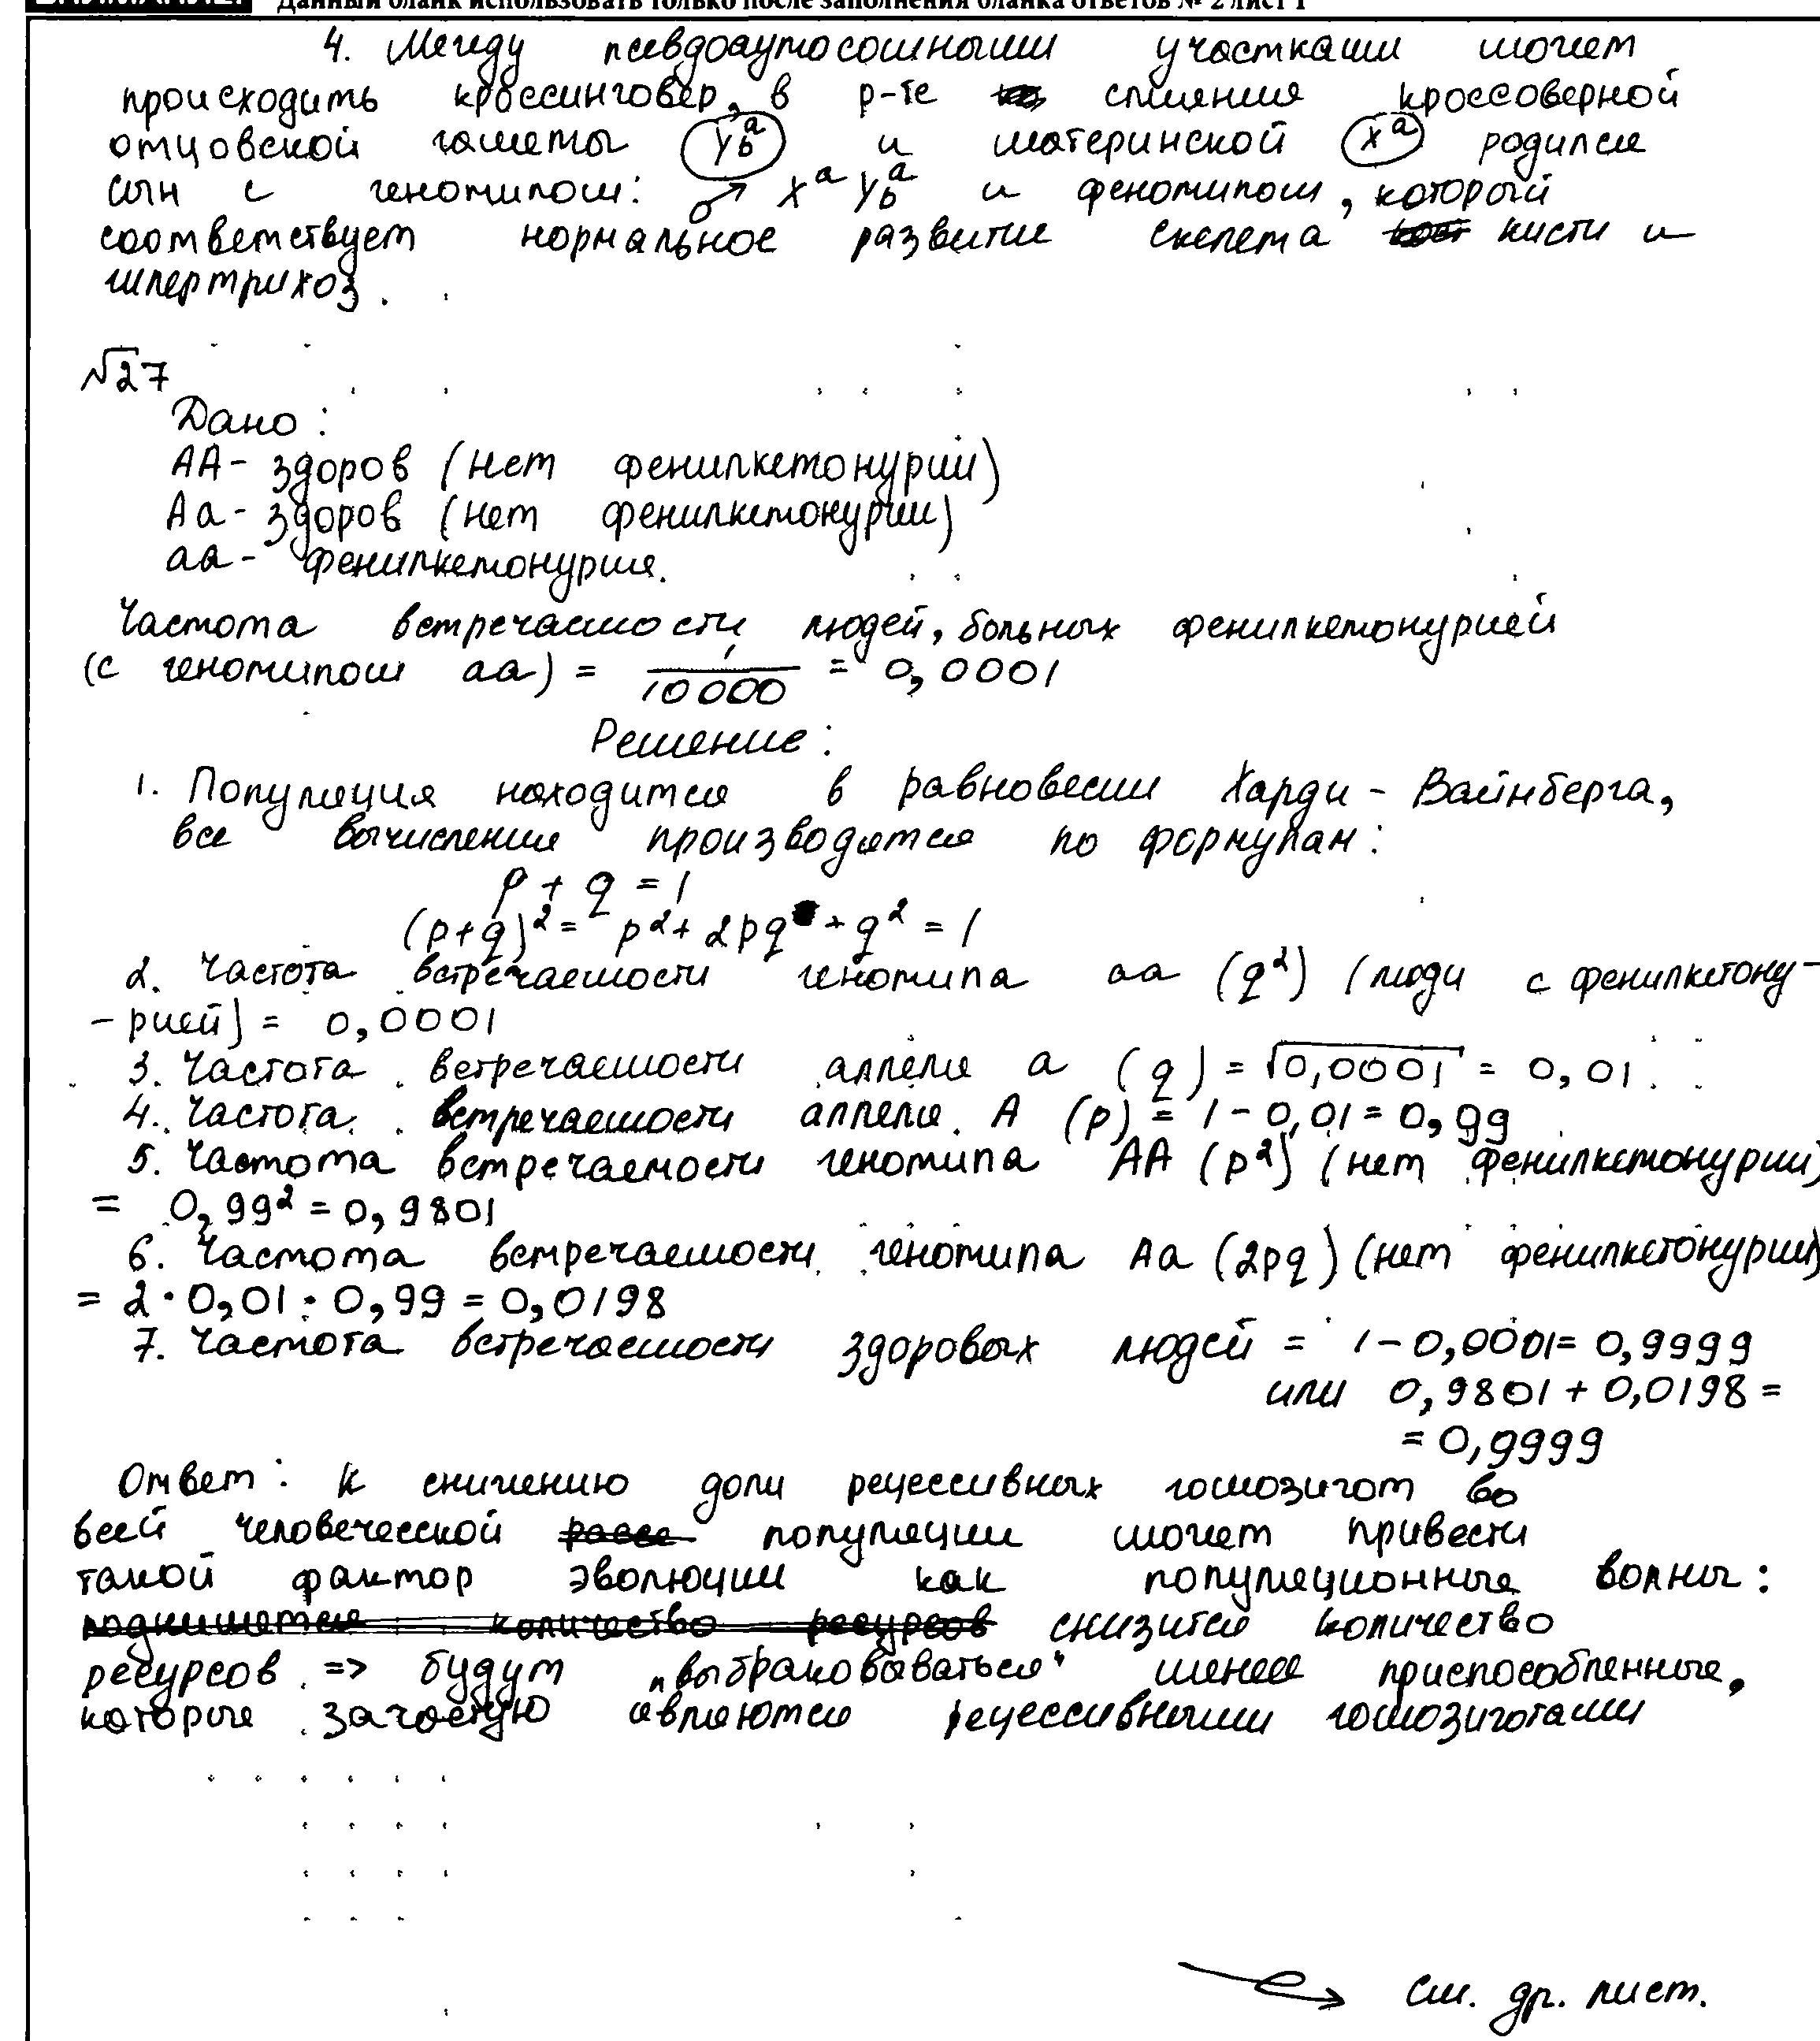 Данный бланк использовать только после заполнения бланка ответов № 2 лист 1
4. Между псевдоаутосомными участками может
происходить кроссинговер, в р-те слияния кроссоверной
отцовской гаметы Y_b^a и материнской X^a родился
сын с генотипом: ♂ X^a Y_b^a и фенотипом, который
соответствует нормальное развитие скелета кисти и
гипертрихоз.
№27
Дано:
АА - здоров (нет фенилкетонурии)
Аа - здоров (нет фенилкетонурии)
аа - фенилкетонурия.
Частота встречаемости людей, больных фенилкетонурией
(с генотипом аа) = 1/10000 = 0,0001
Решение:
1. Популяция находится в равновесии Харди - Вайнберга,
все вычисления производятся по формулам:
p + q = 1
(p+q)² = p² + 2pq + q² = 1
2. Частота встречаемости генотипа аа (q²) (люди с фенилкетону-
-рией) = 0,0001
3. Частота встречаемости аллеля а (q) = √0,0001 = 0,01
4. Частота встречаемости аллеля А (p) = 1 - 0,01 = 0,99
5. Частота встречаемости генотипа АА (p²) (нет фенилкетонурии)
= 0,99² = 0,9801
6. Частота встречаемости генотипа Аа (2pq) (нет фенилкетонурии)
= 2 · 0,01 · 0,99 = 0,0198
7. Частота встречаемости здоровых людей = 1 - 0,0001 = 0,9999
или 0,9801 + 0,0198 =
= 0,9999
Ответ: к снижению доли рецессивных гомозигот во
всей человеческой расе популяции может привести
такой фактор эволюции как популяционные волны:
поднимется количество ресурсов снизится количество
ресурсов => будут "выбраковываться" менее приспособленные,
которые зачастую являются рецессивными гомозиготами
См. др. лист.